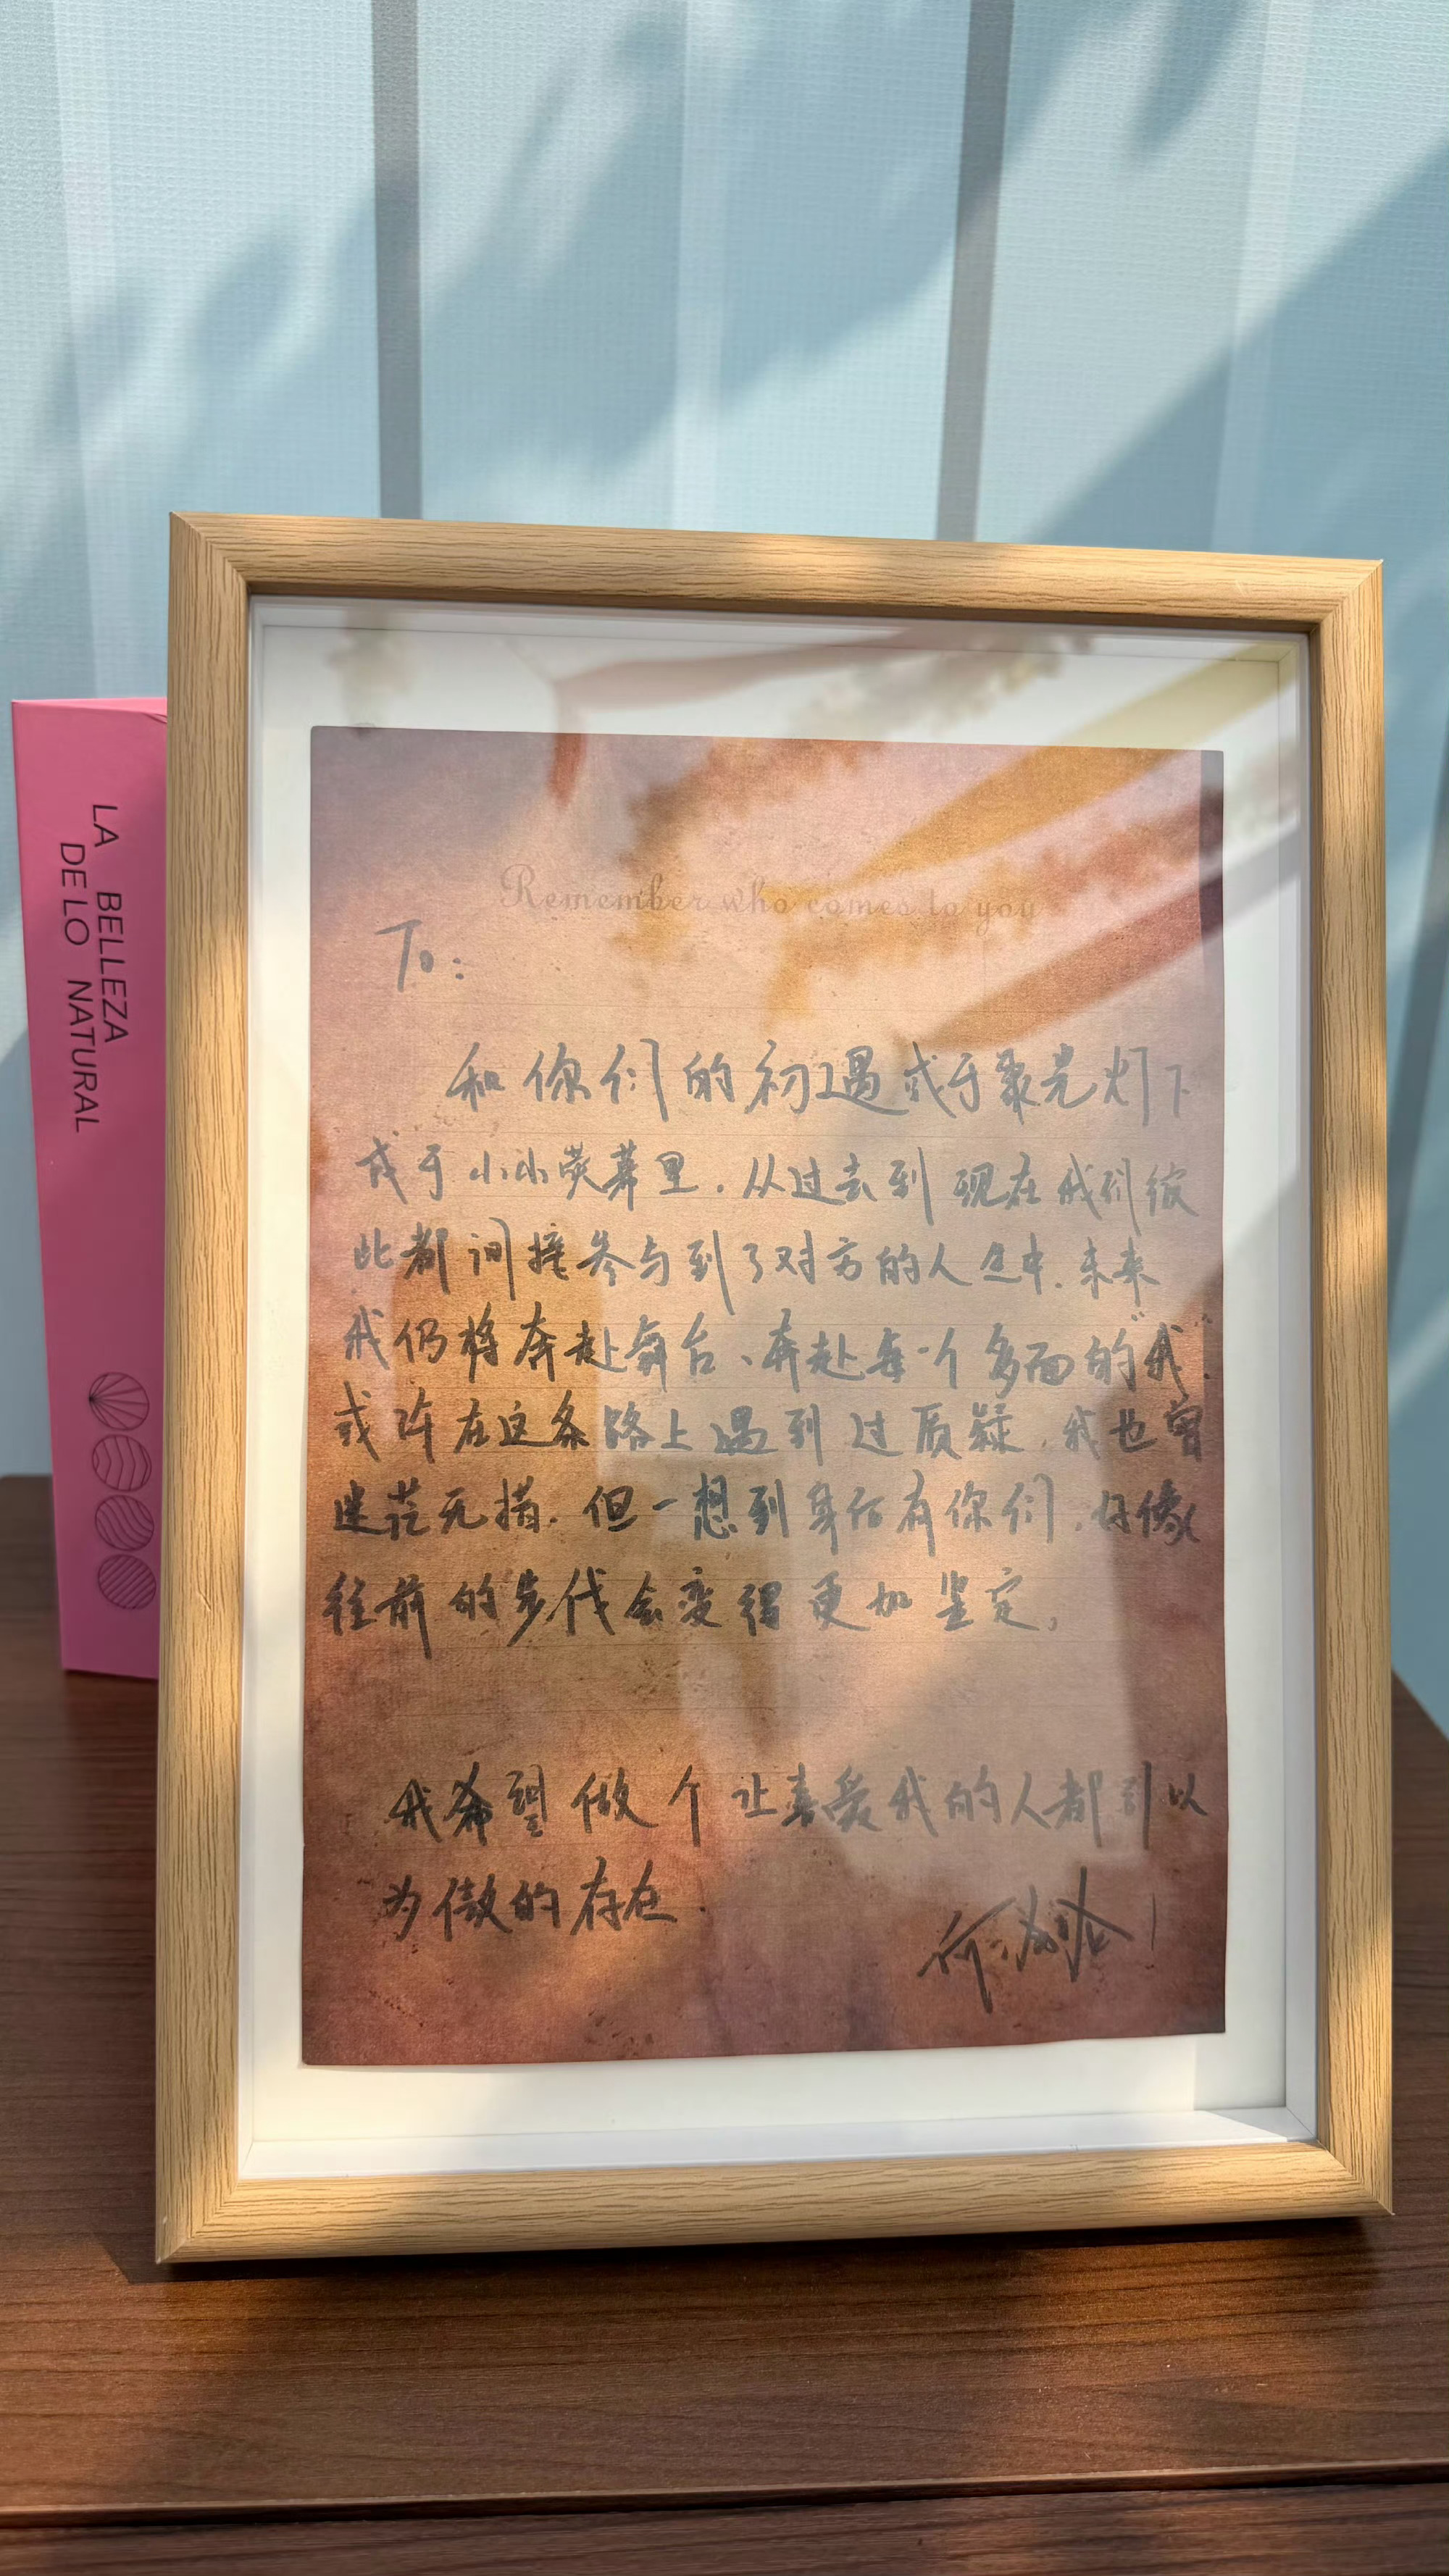 LA BELLEZA
DE LO NATURAL
Remember who comes to you
To:
和你们的初遇或于聚光灯下
或于小小荧幕里.从过去到现在我们彼
此都间接参与到了对方的人生中.未来
我仍将奔赴舞台、奔赴每一个多面的"我".
或许在这条路上遇到过质疑,我也曾
迷茫无措.但一想到身后有你们,好像
往前的步伐会变得更加坚定,
我希望做个让喜爱我的人都引以
为傲的存在.